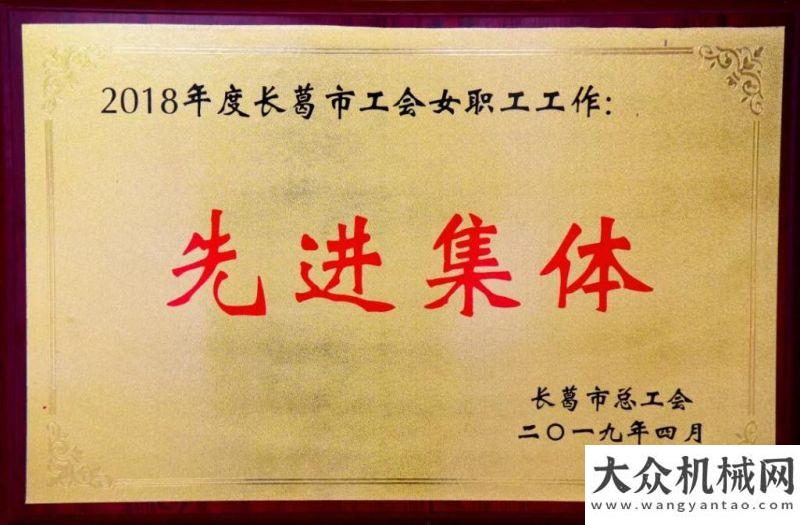 2018年度长葛市工会女职工工作：
先进集体
长葛市总工会
二〇一九年四月
大众机械网
www.wangyantao.com